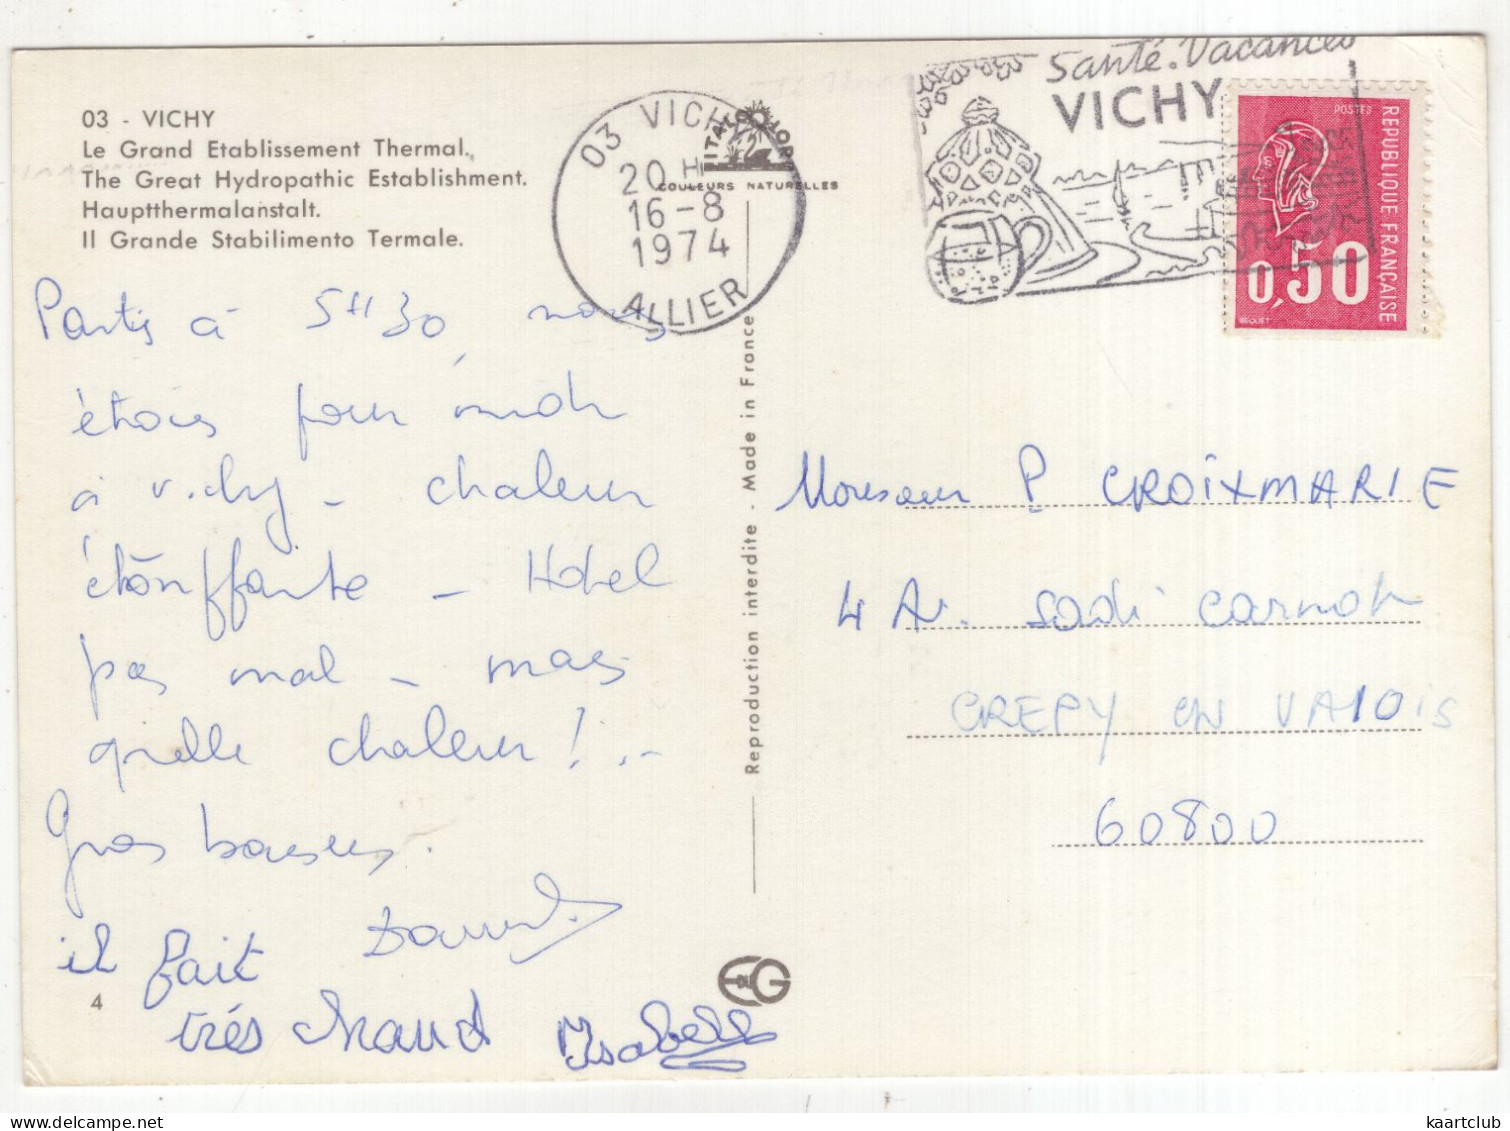 03 - VICHY
Le Grand Etablissement Thermal.
The Great Hydropathic Establishment.
Hauptthermalanstalt.
Il Grande Stabilimento Termale.
Partis à 5H30, nous
étions pour midi
à Vichy - chaleur
étouffante - Hotel
pas mal - mais
quelle chaleur! ..-
Gros baisers.
il fait
très chaud Isabelle
4
03 VICHY
20 H
16-8
1974
ALLIER
ITALCOLOR
COULEURS NATURELLES
Reproduction interdite - Made in France
Santé.Vacances
VICHY
POSTES
REPUBLIQUE FRANÇAISE
0,50
BEQUET
Monsieur P CROIXMARIE
4 Av. Sadi Carnot
CREPY EN VALOIS
60800
kaartclub